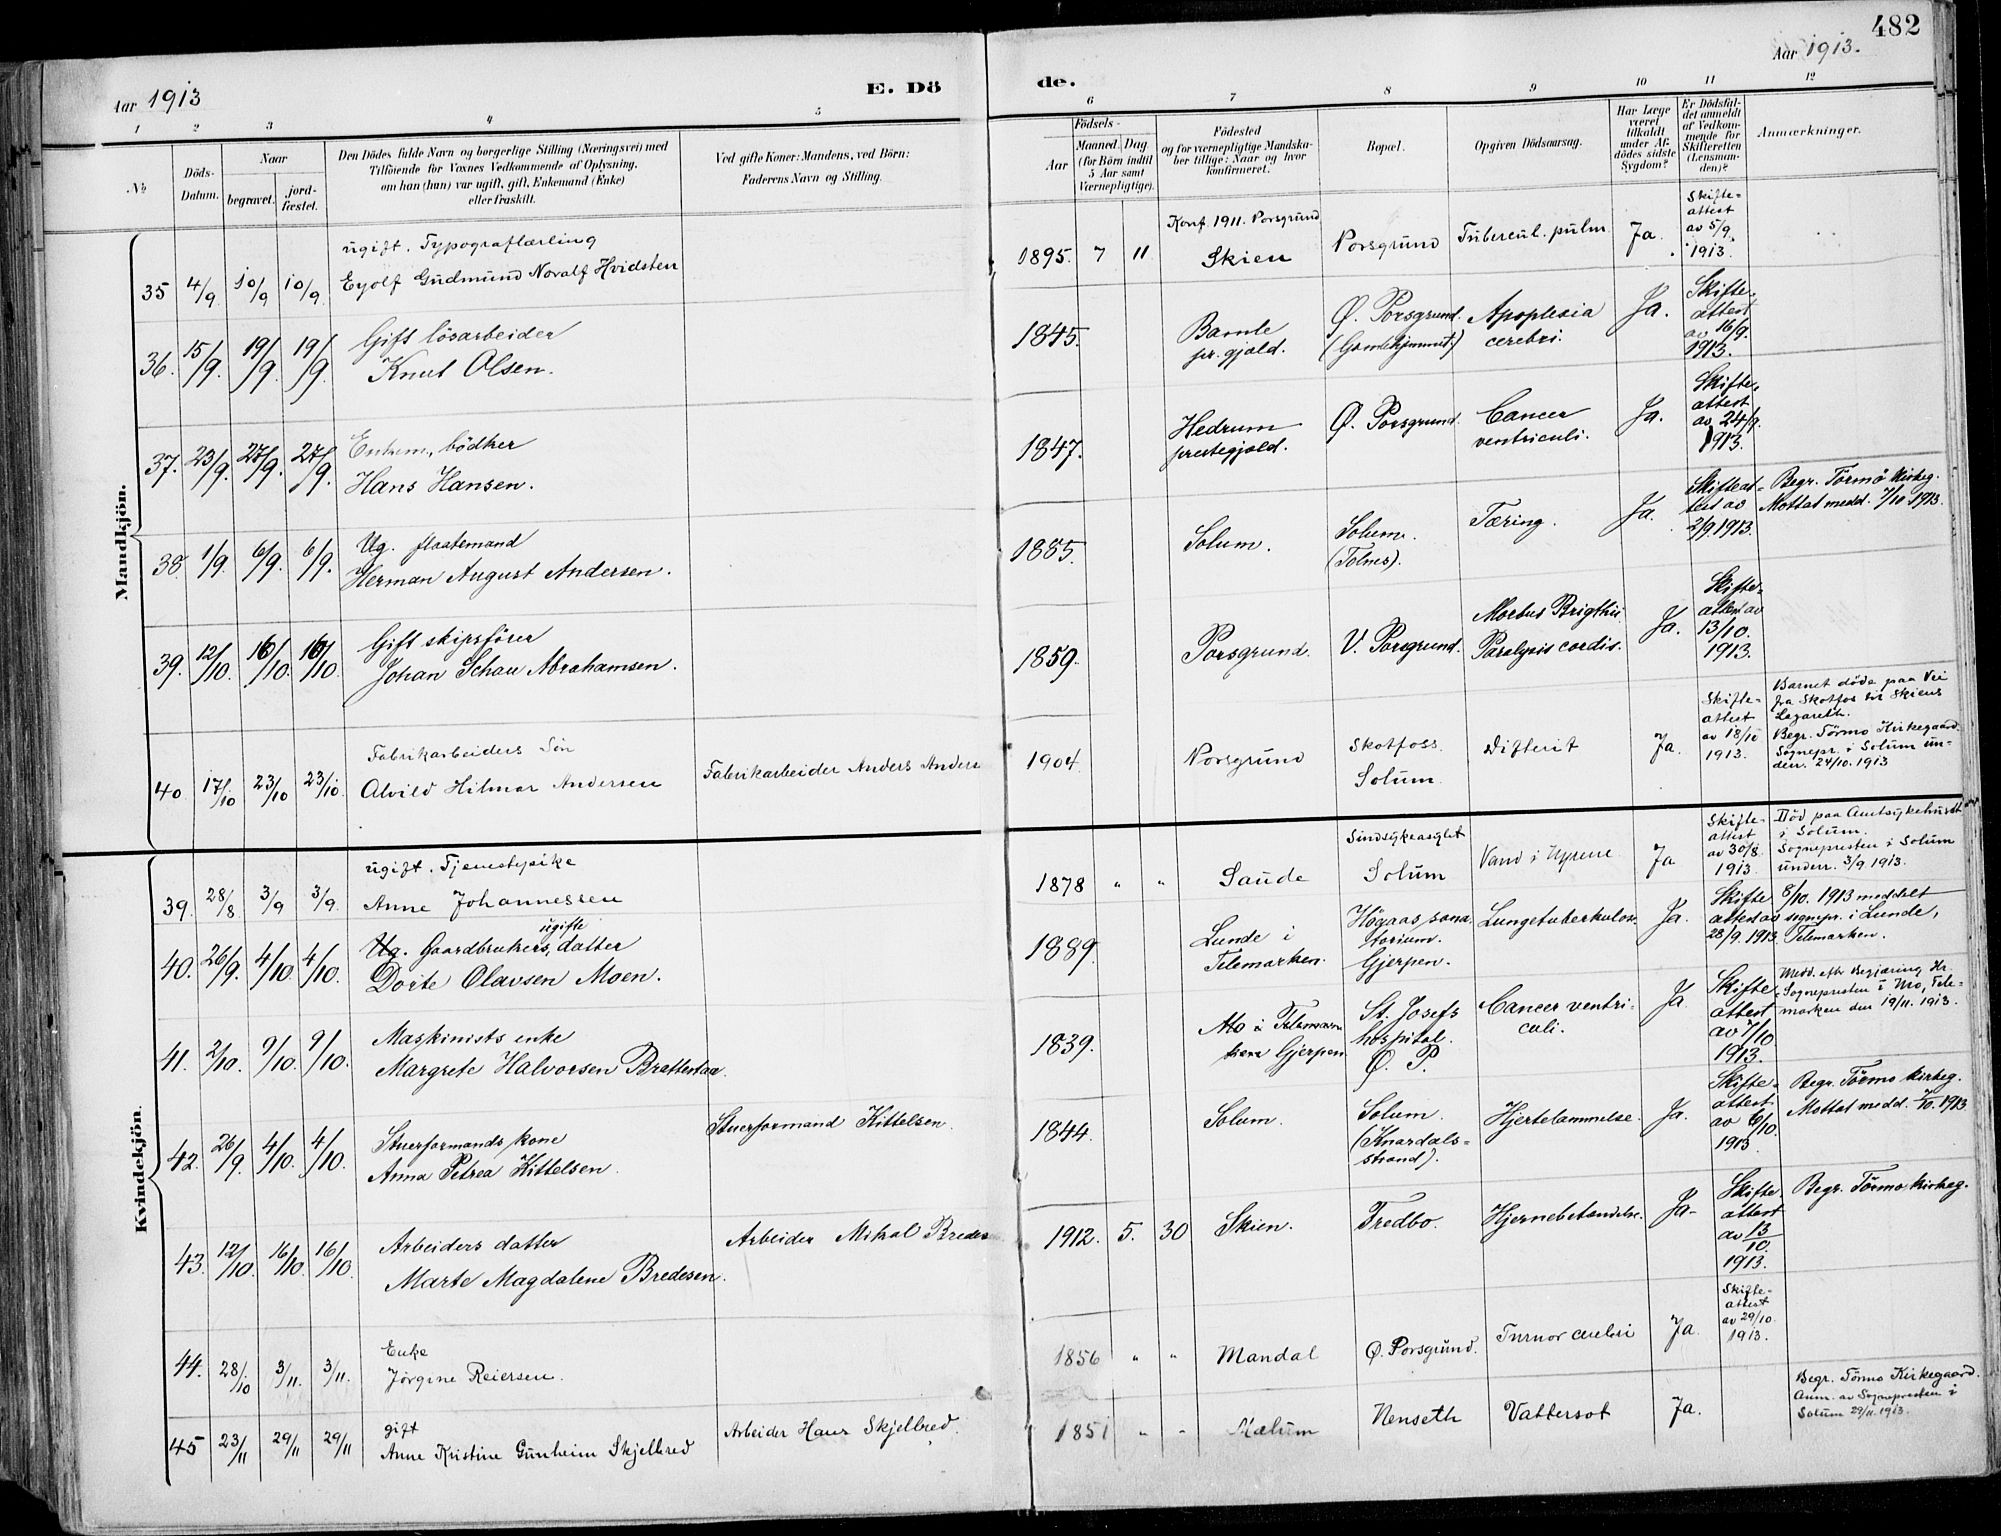 482
Aar 1913
E. Dö
de.
Aar 1913.
1 2 3 4 5 6 7 8 9 10 11 12
No
Döds-Datum.
Naar
begravet.
jord-fæstet.
Den Dödes fulde Navn og borgerlige Stilling (Næringsvei) med
Tilföiende for Voxnes Vedkommende af Oplysning,
om han (hun) var ugift, gift, Enkemand (Enke)
eller fraskilt.
Ved gifte Koner: Mandens, ved Börn:
Faderens Navn og Stilling.
Födsels-
Aar
Maaned. Dag.
(for Börn indtil
5 Aar samt
Værnepligtige).
Födested
og for værnepligtige Mandska-
ber tillige: Naar og hvor
konfirmeret.
Bopæl.
Opgiven Dödsaarsag.
Har Læge
været
tilkaldt
under Af-
dödes sidste
Sygdom?
Er Dödsfal-
det anmeldt
af Vedkom-
mende for
Skifteretten
(Lensman-
den)?
Anmærkninger.
Mandkjön.
35 4/9 10/9 10/9
ugift. Typograflærling
Eyolf Gudmund Noralf Hvidsten
1895. 7 11
Konf. 1911. Porsgrund
Skien
Porsgrund
Tubercul. pulm
Ja.
Skifte-
attest
av 5/9
1913.
36. 15/9. 19/9. 19/9.
Gift lösarbeider
Knut Olsen.
1845.
Bamle
pr. gjeld.
Ø. Porsgrund.
Apoplexia
cerebri.
Ja.
Skifte-
attest
av 16/9.
1913.
37. 23/9. 27/9. 27/9.
Enkem., bödker
Hans Hansen.
1847.
Hedrum
prestegjeld.
Ø. Porsgrund.
Cancer
ventriculi.
Ja.
Skifte-
attest
av 24/9.
1913.
38. 1/9. 6/9. 6/9.
Ug. flaatemand
Herman August Andersen.
1855.
Solum.
Solum.
(Tolnes).
Tæring.
Ja.
Skifteat-
test av
2/9 1913.
Begr. Törmo kirkeg.
Mottat medd. 7/10 1913.
39. 12/10. 16/10. 16/10.
Gift skipsförer
Johan Schau Abrahamsen.
1859.
Porsgrund.
V. Porsgrund.
Morbus Brigthii
Paralysis cordis.
Ja.
Skifte-
attest av
13/10.
1913.
40. 17/10 23/10 23/10.
Fabrikarbeiders Sön
Alvild Hilmar Andersen
Fabrikarbeider Anders Anders
1904.
Porsgrund
Skotfoss.
Solum.
Difterit
Ja.
Skifte-
attest
av 18/10
1913.
Barnet döde paa Vei
fra Skotfos til Skiens
Lazareth.
Begr. Törmo Kirkegaard.
Sognepr. i Solum un-
derr. 24/10. 1913
Kvindekjön.
39. 28/8 3/9 3/9.
ugift. Tjenestepike
Anne Johannessen
1878 " "
Saude
Sindsykeasylet
Solum
Vand i Nyrene
Ja
Skifte-
attest
av 30/8.
1913.
Död paa Amtsykehuset
i Solum.
Sognepresten i Solum
underr. 3/9 1913.
40. 26/9. 4/10. 4/10.
Ug. Gaardbrukers ugifte datter
Dorte Olavsen Moen.
1889.
Lunde i
Telemarken.
Högaas sana-
torium.
Gjerpen.
Lungetuberkulose
Ja.
Skifte
attest av
28/9. 1913.
8/10. 1913 meddelt
sognepr. i Lunde,
Telemarken.
41. 2/10. 9/10. 9/10.
Maskinists enke
Margrete Halvorsen Brattestaa.
1839.
Mo i Telemar-
ken Gjerpen
St. Josefs
hospital.
Ø. P.
Cancer ventri-
culi.
Ja.
Skifte-
attest
av 7/10
1913.
Medd. efter Begjæring Hr.
Sognepresten i Mo, Tele-
marken den 19/11. 1913.
42. 26/9. 4/10. 4/10.
Stuerformands kone
Anna Petrea Kittelsen.
Stuerformand Kittelsen.
1844.
Solum.
Solum.
(Knardals-
strand).
Hjertelammelse.
Ja.
Skifte-
attest
av 6/10.
1913.
Begr. Törmo kirkeg.
Mottat medd. 7/10. 1913
43. 12/10. 16/10. 16/10.
Arbeiders datter
Marte Magdalene Bredesen.
Arbeider Mikal Bredes
1912. 5. 30
Skien.
Fredbo.
Hjernebetændelse.
Ja.
Skifte-
attest
av 13/10.
1913.
Begr. Törmo kirkeg.
44. 28/10 3/11. 3/11.
Enke
Jörgine Reiersen.
1856 " "
Mandal
Ø. Porsgrund.
Tumor cerebri
Ja.
Skifte-
attest
av 29/10.
1913.
45 23/11 29/11 29/11
gift
Anne Kristine Gunheim Skjelbred
Arbeider Hans Skjelbred.
1851 " "
Mælum
Nenseth
Vattersot
Ja.
Begr. Törmo Kirkegaard.
Anm. av Sognepresten i
Solum 29/11. 1913.